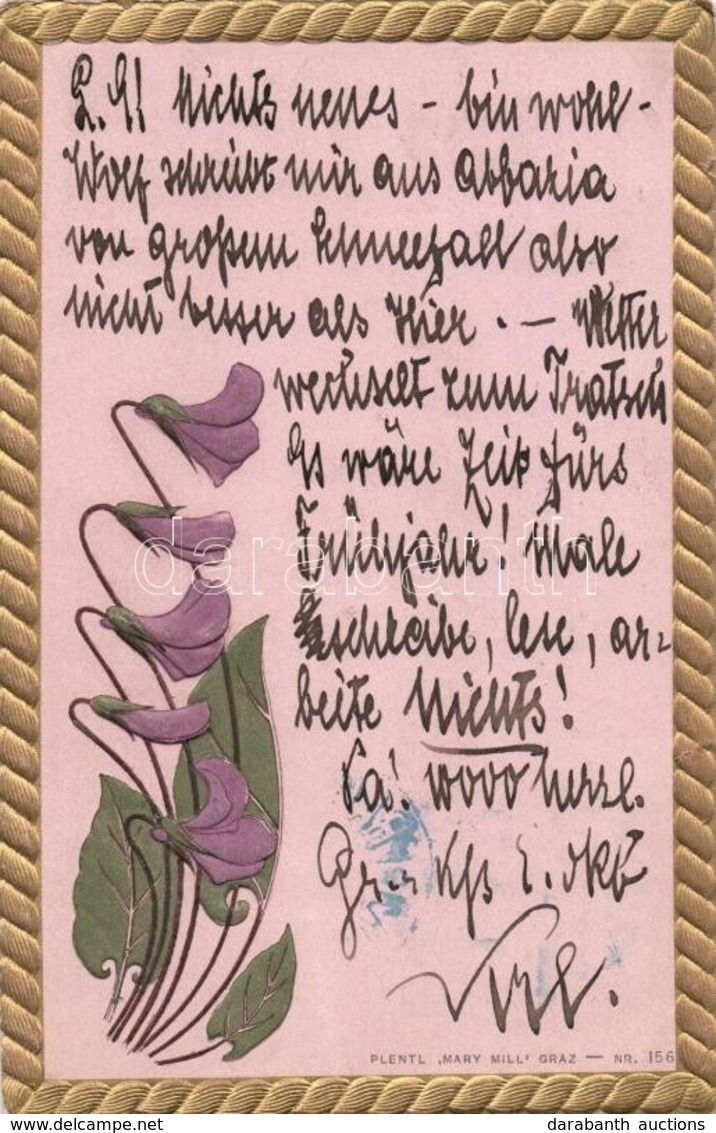 L. G! Nichts neues - bin wohl -
Wolf schreibt mir aus Abbazia
von großem Schneefall also
nicht besser als hier . — Wetter
wechselt zum Tratsch
Es wäre Zeit fürs
Frühjahr! Male
schreibe, lese, ar=
beite Nichts!
Pa! 1000 herzl.
Gr. u. Kß
PLENTL „MARY MILL" GRAZ — NR. 156
darabanth
darabanth auctions